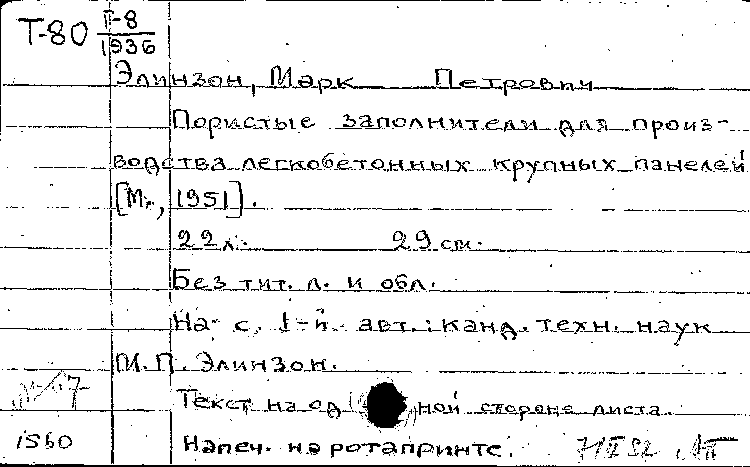 Т-80 Т-8
1936
Элинзон, Марк Петрович
Пористые заполнители для произ-
водства легкобетонных крупных панелей
[М., 1951].
22 л. 29 см.
Без тит. л. и обл.
На с. 1-й авт.: канд. техн. наук
М. П. Элинзон.
Текст на одной стороне листа.
1560 Напеч. на ротапринте.